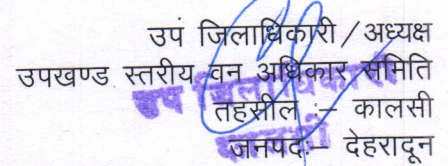 उप जिलाधिकारी / अध्यक्ष
उपखण्ड स्तरीय वन अधिकार समिति
उप जिलाधिकारी
तहसील :– कालसी
जनपदः– देहरादून